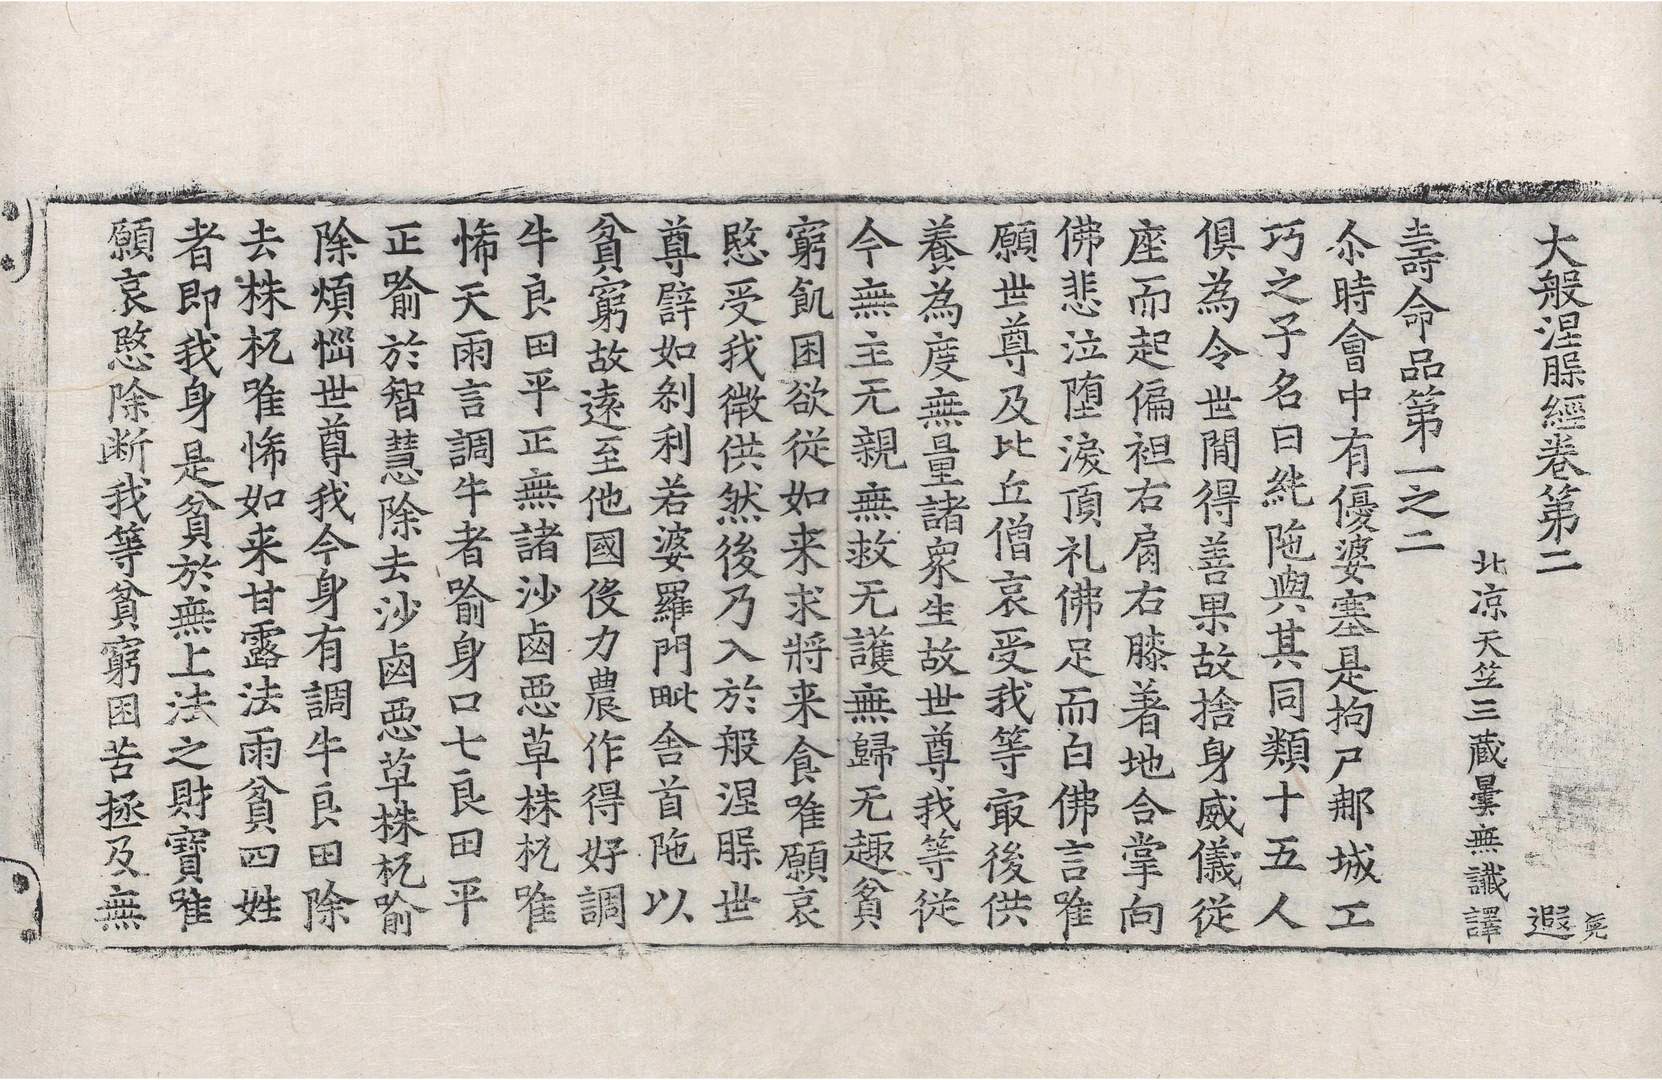 大般涅槃經卷第二 遐
北涼天竺三藏曇無讖譯
壽命品第一之二
尒時會中有優婆塞是拘尸那城工
巧之子名曰純陁與其同類十五人
俱為令世閒得善果故捨身威儀從
座而起偏袒右肩右膝著地合掌向
佛悲泣墮淚頂礼佛足而白佛言唯
願世尊及比丘僧哀受我等㝡後供
養為度無量諸衆生故世尊我等從
今無主无親無救无護無歸无趣貧
窮飢困欲從如来求將来食唯願哀
愍受我微供然後乃入於般涅槃世
尊譬如剎利若婆羅門毗舍首陁以
貧窮故逺至他國役力農作得好調
牛良田平正無諸沙鹵惡草株杌唯
悕天雨言調牛者喻身口七良田平
正喻於智慧除去沙鹵惡草株杌喻
除煩惱世尊我今身有調牛良田除
去株杌唯悕如来甘露法雨貧四姓
者即我身是貧於無上法之財寶唯
願哀愍除断我等貧窮困苦拯及無